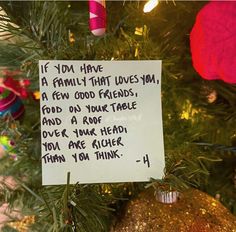 IF YOU HAVE
A FAMILY THAT LOVES YOU,
A FEW GOOD FRIENDS,
FOOD ON YOUR TABLE
AND A ROOF
OVER YOUR HEAD,
YOU ARE RICHER
THAN YOU THINK. -H